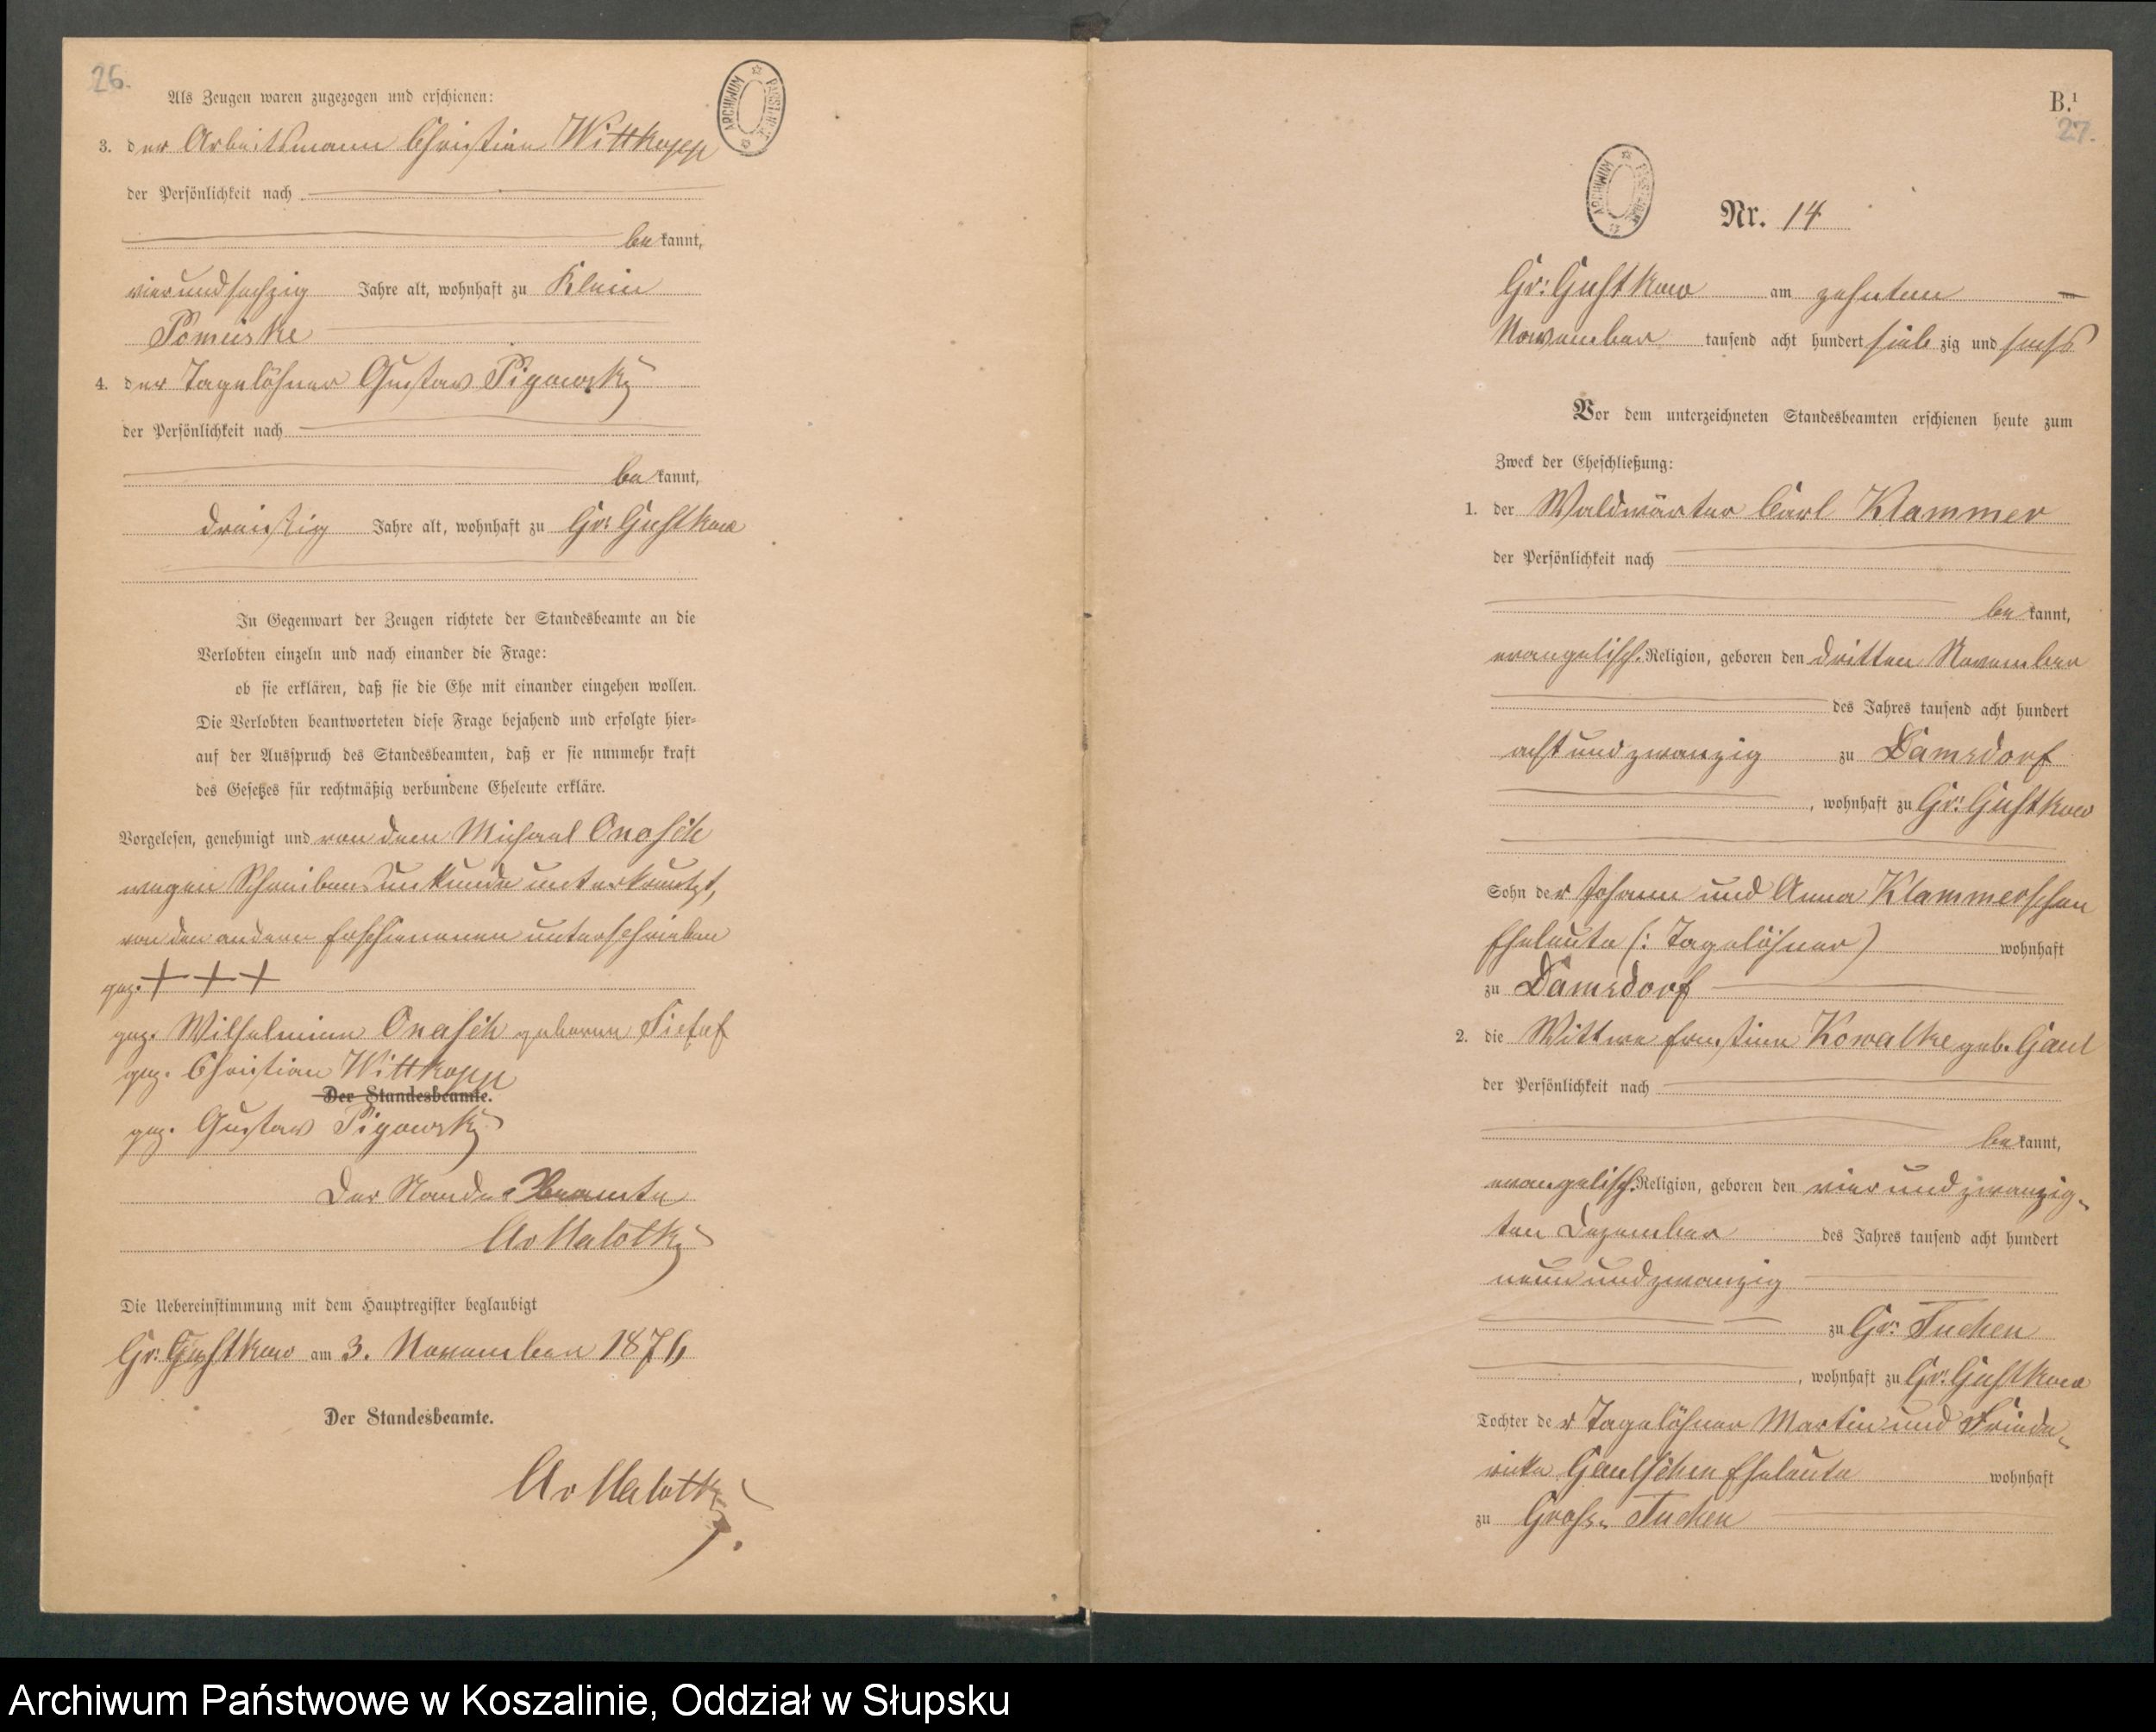 26.
Als Zeugen waren zugezogen und erschienen:
3. der Arbeitsmann Christian Wittkopp
der Persönlichkeit nach
be kannt,
vierundsechzig Jahre alt, wohnhaft zu Klein
Pomeiske
4. der Tagelöhner Gustav Pigowsky
der Persönlichkeit nach
be kannt,
dreißig Jahre alt, wohnhaft zu Gr: Gustkow
In Gegenwart der Zeugen richtete der Standesbeamte an die
Verlobten einzeln und nach einander die Frage:
ob sie erklären, daß sie die Ehe mit einander eingehen wollen.
Die Verlobten beantworteten diese Frage bejahend und erfolgte hier-
auf der Ausspruch des Standesbeamten, daß er sie nunmehr kraft
des Gesetzes für rechtmäßig verbundene Eheleute erkläre.
Vorgelesen, genehmigt und von dem Michael Onasch
wegen Schreibens Unkunde unterkreuzt,
von den andern Erschienenen unterschrieben
gez. + + +
gez. Wilhelmine Onasch geborene
gez. Christian Wittkopp
Der Standesbeamte.
gez. Gustav Pigowsky
Der Standesbeamte
Die Uebereinstimmung mit dem Hauptregister beglaubigt
Gr: Gustkow am 3. November 1876
Der Standesbeamte.
B.¹
27.
ARCHIWUM
Nr. 14
Gr: Gustkow am zehnten
November tausend acht hundert sieb zig und sechs
Vor dem unterzeichneten Standesbeamten erschienen heute zum
Zweck der Eheschließung:
1. der Waldwärter Carl Klammer
der Persönlichkeit nach
be kannt,
evangelisch. Religion, geboren den dritten November
des Jahres tausend acht hundert
acht und zwanzig zu Damsdorf
, wohnhaft zu Gr: Gustkow
Sohn der Johann und Anna Klammerschen
Eheleute (: Tagelöhner) wohnhaft
zu Damsdorf
2. die Wittwe Ernstine Kowalke geb. Gaul
der Persönlichkeit nach
be kannt,
evangelisch. Religion, geboren den vier und zwanzig-
ten Dezember des Jahres tausend acht hundert
neun und zwanzig
zu Gr: Tuchen
, wohnhaft zu Gr: Gustkow
Tochter der Tagelöhner Martin und Friede-
ricke Gaulschen Eheleute wohnhaft
zu Gross- Tuchen
Archiwum Państwowe w Koszalinie, Oddział w Słupsku